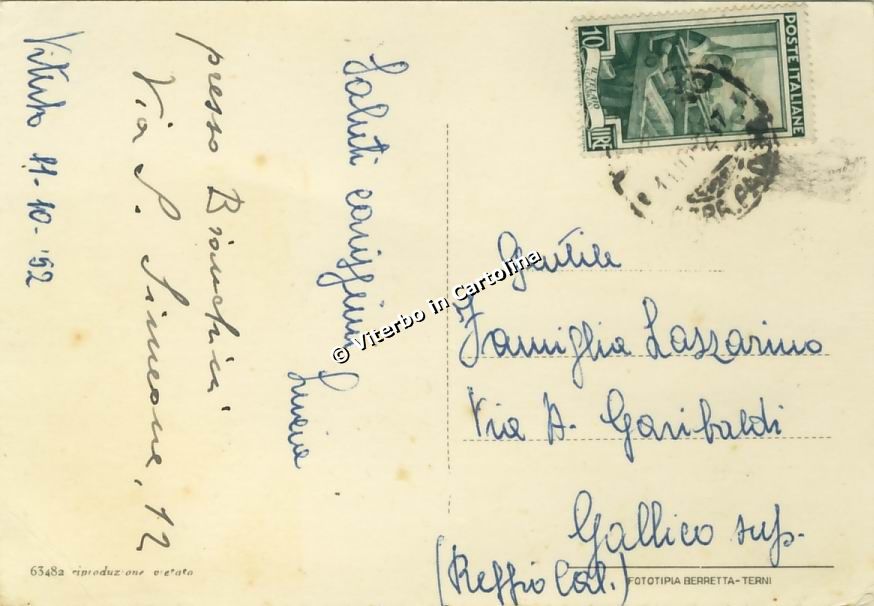 Viterbo 11-10-'52
presso Bianchini
Via S. Simeone, 12
Saluti carissimi
Luciana
10
LIRE
IL TELAIO
POSTE ITALIANE
Gentile
Famiglia Lazzarino
Via A. Garibaldi
Gallico sup.
(Reggio Cal.)
63482 riproduzione vietata
FOTOTIPIA BERRETTA - TERNI
© Viterbo in Cartolina